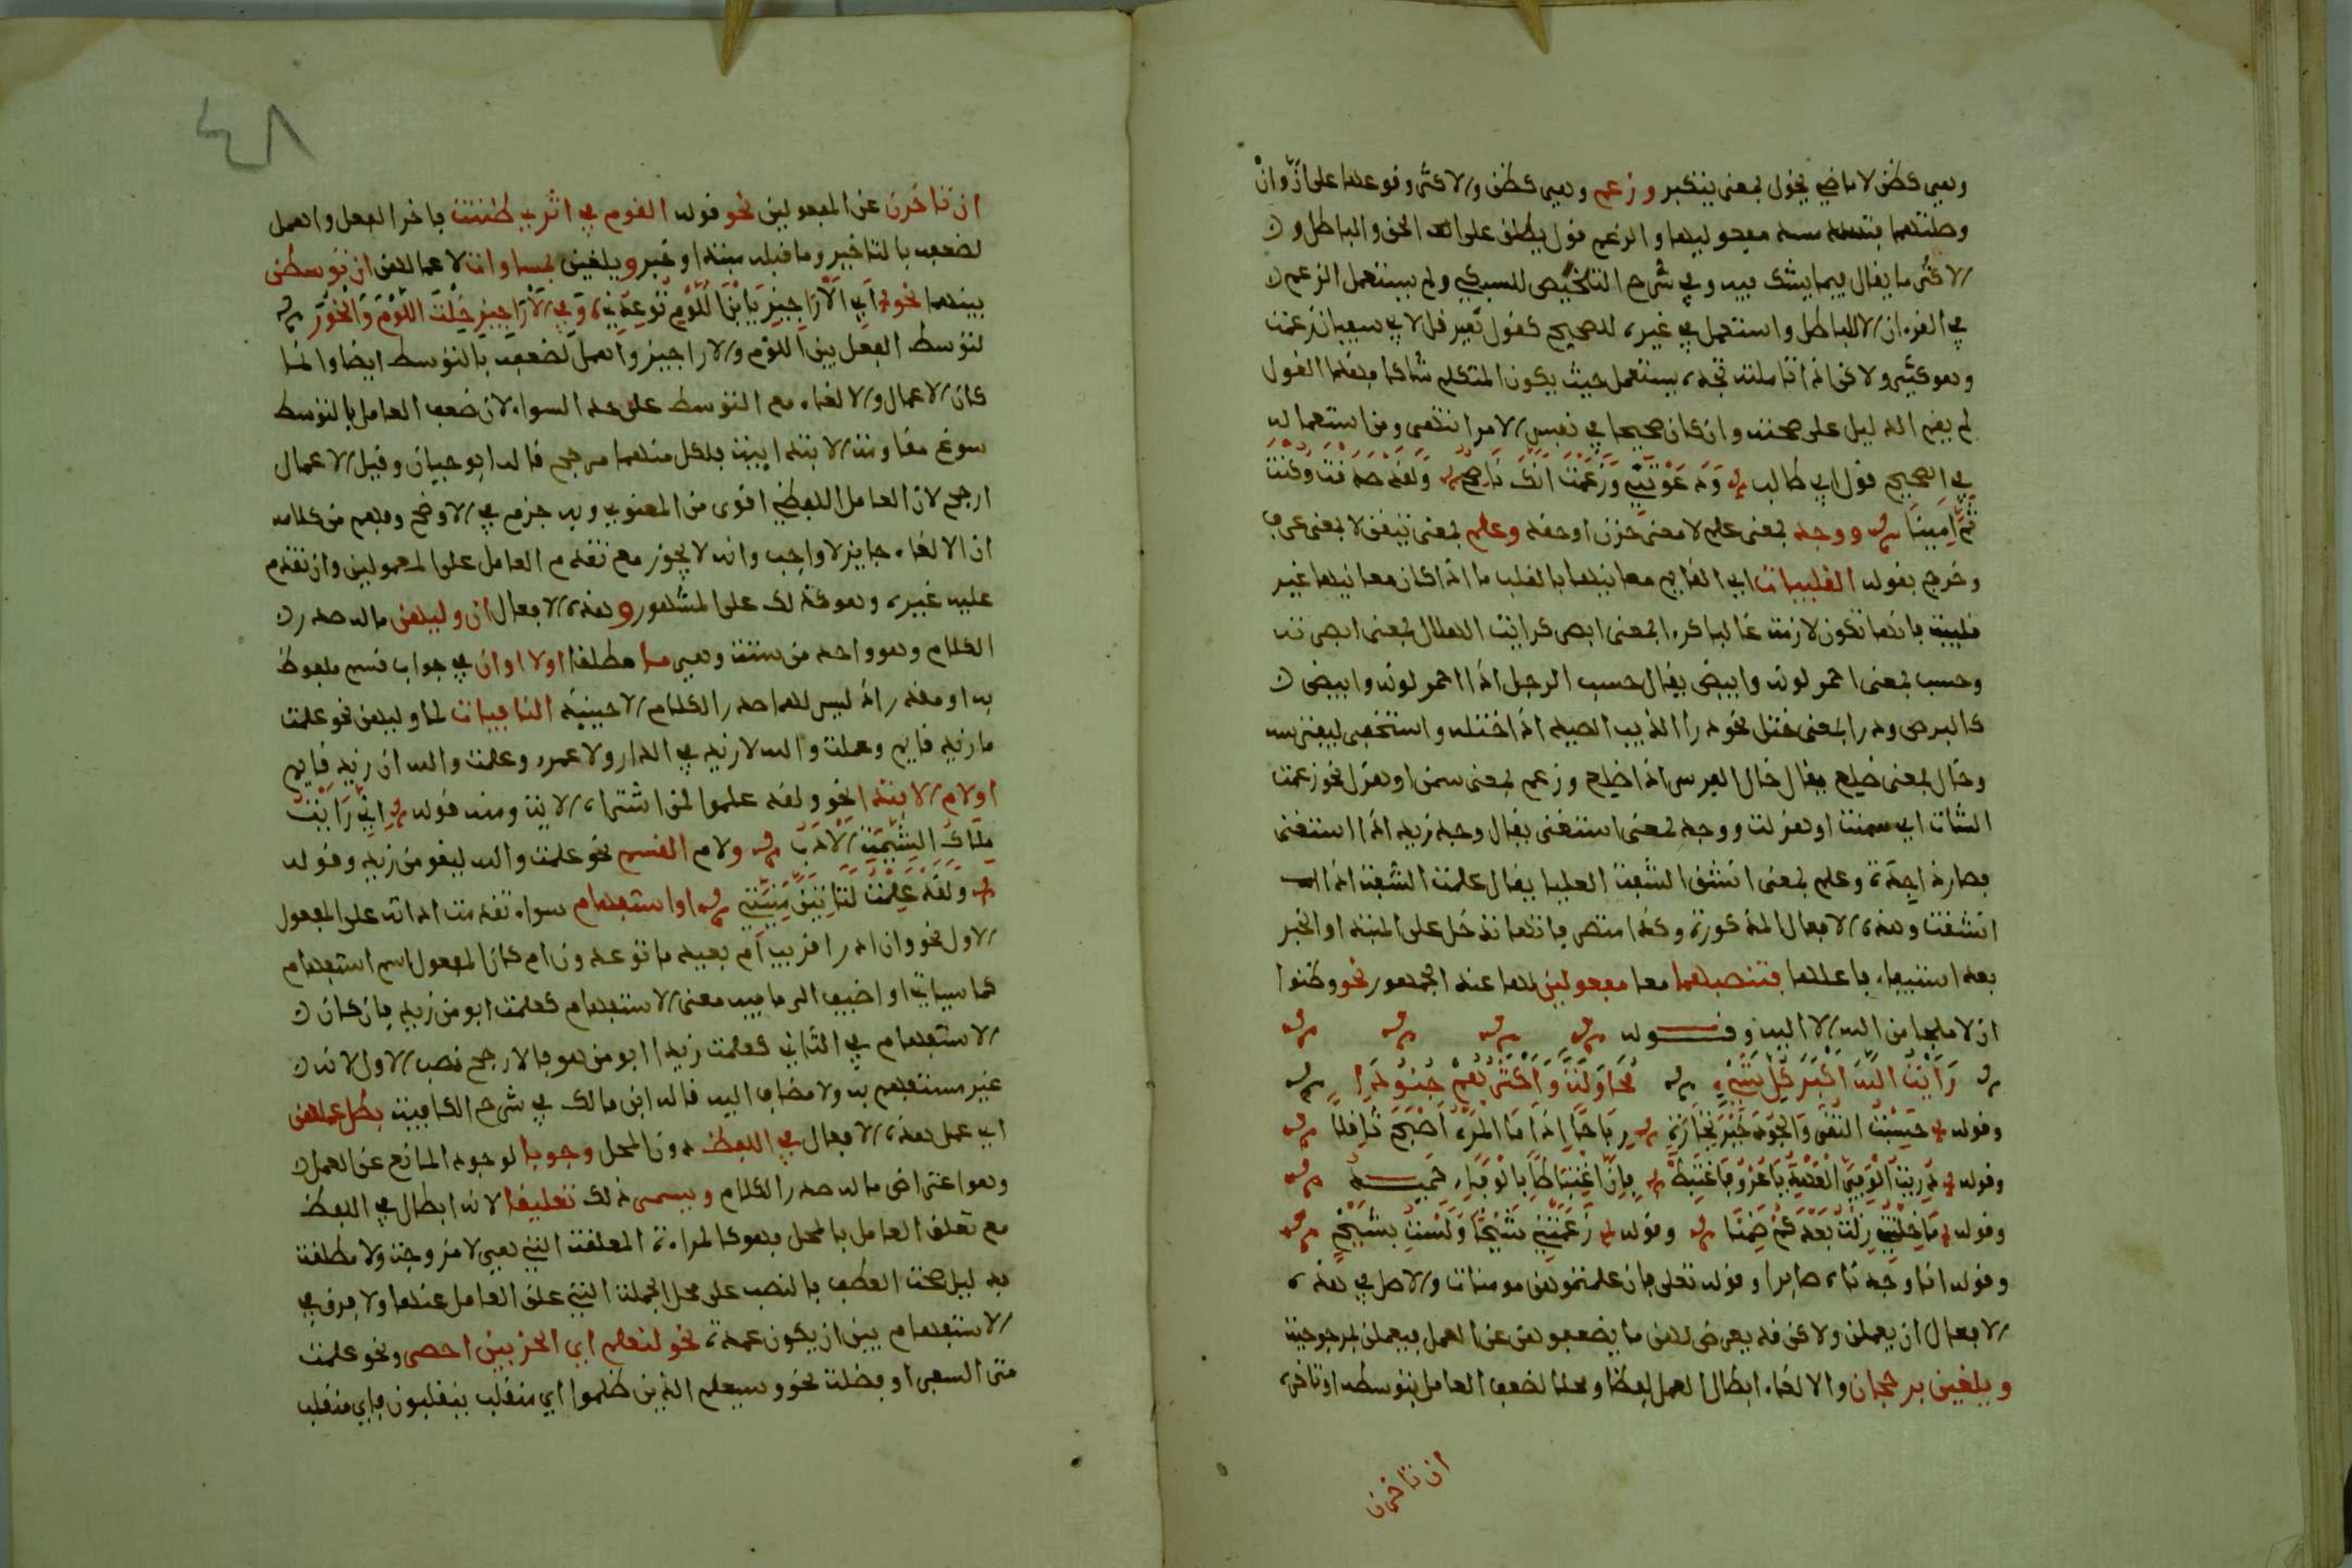 وهي كظن لا ماضي يخول بمعنى يتكبر وزعم وهي كظن والاكثر وقوعها على انّ وانْ
وصلتهما فتسد مسد مفعوليها والزعم قول يطلق على الحق والباطل و
الاكثر ما يقال فيما يشك فيه وفي شرح التلخيص للسبكي ولم يستعمل الزعم
في القرءان الا للباطل واستعمل في غيره للصحيح كقول هرقل لابي سفيان زعمت
وهو كثير ولاكن اذا تاملته تجده يستعمل حيث يكون المتكلم شاكا فهذا القول
لم يقم الدليل على صحته وان كان صحيحا في نفس الامر انتهى ومن استعماله
في الصحيح قول ابي طالب وَدَعَوْتَنِي وَزَعَمْتَ انّكَ نَاصِحٌ وَلَقَدْ صَدَقْتَ وَكُنْتَ
ثَمَّ اَمِينَا ووجد بمعنى علم لا معنى حزن او حقد وعلم بمعنى تيقن لا بمعنى عرف
وخرج بقوله القلبيات اي القايم معانيها بالقلب ما اذا كان معانيها غير
قلبية فانها تكون لازمة غالبا كرءا بمعنى ابصر كرايت الهلال بمعنى ابصرته
وحسب بمعنى احمر لونه وابيض يقال حسب الرجل اذا احمر لونه وابيض
كالبرص ودرا بمعنى ختل نحو درا الذيب الصيد اذا اختله واستخفى ليفترسه
وخال بمعنى ضلع يقال خال الفرس اذا ضلع وزعم بمعنى سمن او هزل نحو زعمت
الشاة اي سمنت او هزلت ووجد بمعنى استغنى يقال وجد زيد اذا استغنى
فصار ذا جدة وعلم بمعنى انشق الشفة العليا يقال علمت الشفة اذا
انشقت وهذه الافعال المذكورة وكذا متصرفاتها تدخل على المبتدا والخبر
بعد استيفاء فاعلها فتنصبهما معا مفعولين لها عند الجمهور نحو وظنوا
ان لا ملجا من الله الا اليه وقوله
رَأَيْتُ اللهَ اَكْبَرَ كُلِّ شَيْءٍ مُحَاوَلَةً وَأَكْثَرَهُمْ جُنُودَا
وقوله حَسِبْتُ التُّقَى وَالجُودَ خَيْرَ تِجَارَةٍ رَبَاحًا إِذَا مَا المَرْءُ أَصْبَحَ ثَاقِلاً
وقوله دُرِيتَ الْوَفِيَّ الْعَهْدِ يَا عُرْوَ فَاغْتَبِطْ فَإِنَّ اغْتِبَاطًا بِالْوَفَاءِ حَمِيدُ
وقوله مَا خِلْتُنِي زِلْتُ بَعْدَكُمْ ضَمِنًا وقوله زَعَمَتْنِي شَيْخًا وَلَسْتُ بِشَيْخٍ
وقوله انا وجدناه صابرا وقوله تعلى فان علمتموهن مومنات والاصل في هذه
الافعال ان يعملن ولاكن قد يعرض لهن ما يضعفهن عن العمل فيعملن لمرجوحية
ويلغين برجحان والالغاء ابطال العمل لفظا ومحلا لضعف العامل بتوسطه او تاخره
ان تاخرن
٤٨
ان تاخرن عن المفعولين نحو قوله القوم في اثري ظننت فاخر الفعل واهمل
لضعفه بالتاخير وما قبله مبتدا وخبر ويلغين بمساوات لاعمالهن ان توسطن
بينهما نحو أَبِالْأَرَاجِيزِ يَا بْنَ اللُّؤْمِ تُوعِدُنِي وَفِي الْأَرَاجِيزِ خِلْتُ اللُّؤْمُ وَالْخَوَرُ
لتوسط الفعل بين اللؤم والاراجيز واهمل لضعفه بالتوسط ايضا وانما
كان الاعمال والالغاء مع التوسط على حد السواء لان ضعف العامل بالتوسط
سوغ مقاومة الابتداء فلكل منهما مرجح قاله ابو حيان وقيل الاعمال
ارجح لان العامل اللفظي اقوى من المعنوي وبه جزم في الاوضح وفهم من كلامه
ان الالغاء جايز لا واجب وانه لا يجوز مع تقدم العامل على المعمولين وان تقدم
عليه غيره وهو كذلك على المشهور وهذه الافعال ان وليهن ما له صدر
الكلام وهو واحد من ستة وهي ما مطلقا اولا او ان في جواب قسم ملفوظ
به او مقدر اذ ليس لهما صدر الكلام الا حينيذ النافيات لما وليهن نحو علمت
ما زيد قايم وعملت والله لا زيد في الدار ولا عمرو وعلمت والله ان زيد قايم
اولام الابتدا نحو ولقد علموا لمن اشتراه الاية ومنه قوله اِنِّي رَأَيْتُ
مِلَاكُ الشِّيمَةِ الْأَدَبُ ولام القسم نحو علمت والله ليقومن زيد وقوله
وَلَقَدْ عَلِمْتُ لَتَأْتِيَنَّ مَنِيَّتِي او استفهام سواء تقدمت اداته على المفعول
الاول نحو وان ادري اقريب ام بعيد ما توعدون ام كان المفعول اسم استفهام
كما سياتي او اضيف الى ما فيه معنى الاستفهام كعلمت ابو من زيد فان كان
الاستفهام في الثاني كعلمت زيدا ابو من هو فالارجح نصب الاول لانه
غير مستفهم به ولا مضاف اليه قاله ابن مالك في شرح الكافية بطل عملهن
اي عمل هذه الافعال في اللفظ دون المحل وجوبا لوجود المانع عن العمل
وهو اعتراض ما له صدر الكلام ويسمى ذلك تعليقا لانه ابطال في اللفظ
مع تعلق العامل بالمحل فهو كالمراة المعلقة التي هي لا مزوجة ولا مطلقة
بدليل صحة العطف بالنصب على محل الجملة التي علق العامل عنها ولا فرق في
الاستفهام بين ان يكون عمدة نحو لنعلم اي الحزبين احصى ونحو علمت
متى السفر او فضلة نحو وسيعلم الذين ظلموا اي منقلب ينقلبون فاي منقلب